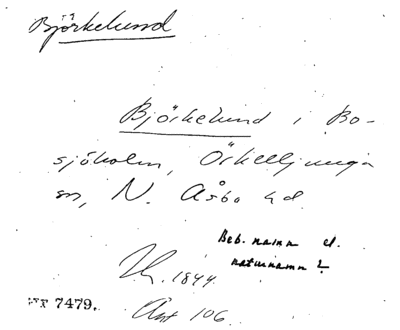 Björkelund
Björkelund i Bo-
sjöholm, Örkelljunga
sn, N. Åsbo hd.
Beb. namn el.
naturnamn?
1844.
7479.
Ant 106